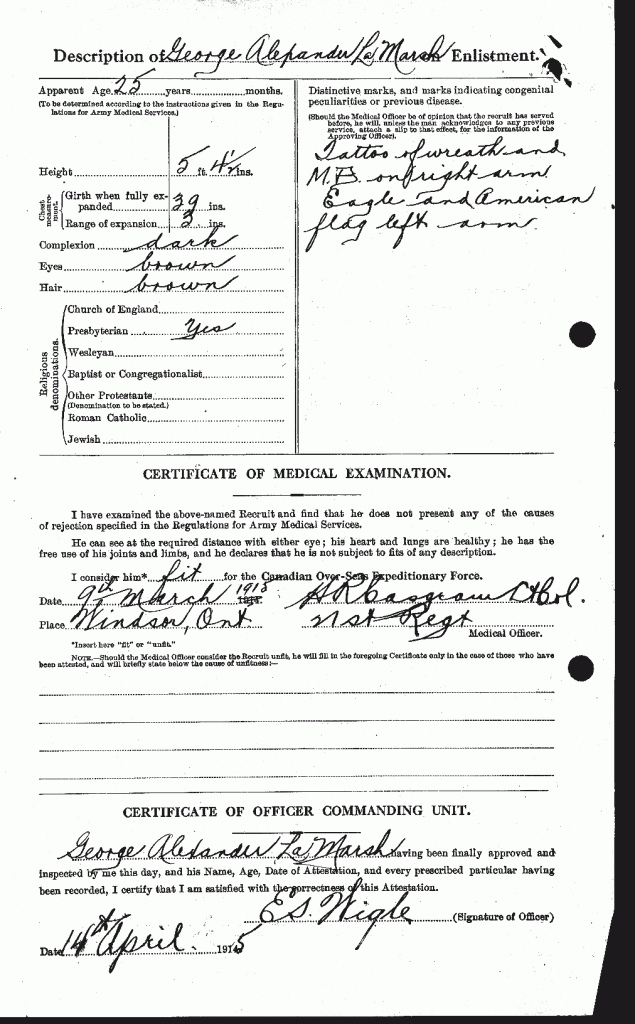 Description of George Alexander La Marsh Enlistment.
Apparent Age 25 years months.
(To be determined according to the instructions given in the Regu-
lations for Army Medical Services.)
Height 5 ft. 4½ ins.
Chest measure-ment.
Girth when fully ex-
panded 39 ins.
Range of expansion 3 ins.
Complexion dark
Eyes brown
Hair brown
Religious denominations.
Church of England
Presbyterian Yes
Wesleyan
Baptist or Congregationalist
Other Protestants
(Denomination to be stated.)
Roman Catholic
Jewish
Distinctive marks, and marks indicating congenital
peculiarities or previous disease.
(Should the Medical Officer be of opinion that the recruit has served
before, he will, unless the man acknowledges to any previous
service, attach a slip to that effect, for the information of the
Approving Officer).
Tattoo of wreath and
M.B. on right arm
Eagle and American
flag left arm
CERTIFICATE OF MEDICAL EXAMINATION.
I have examined the above-named Recruit and find that he does not present any of the causes
of rejection specified in the Regulations for Army Medical Services.
He can see at the required distance with either eye; his heart and lungs are healthy; he has the
free use of his joints and limbs, and he declares that he is not subject to fits of any description.
I consider him* fit for the Canadian Over-Seas Expeditionary Force.
Date 9th March 1915
Place Windsor, Ont
21st Regt
Medical Officer.
*Insert here "fit" or "unfit."
NOTE.—Should the Medical Officer consider the Recruit unfit, he will fill in the foregoing Certificate only in the case of those who have
been attested, and will briefly state below the cause of unfitness:—
CERTIFICATE OF OFFICER COMMANDING UNIT.
George Alexander La Marsh having been finally approved and
inspected by me this day, and his Name, Age, Date of Attestation, and every prescribed particular having
been recorded, I certify that I am satisfied with the correctness of this Attestation.
E S. Wigle (Signature of Officer)
Date 14th April 1915